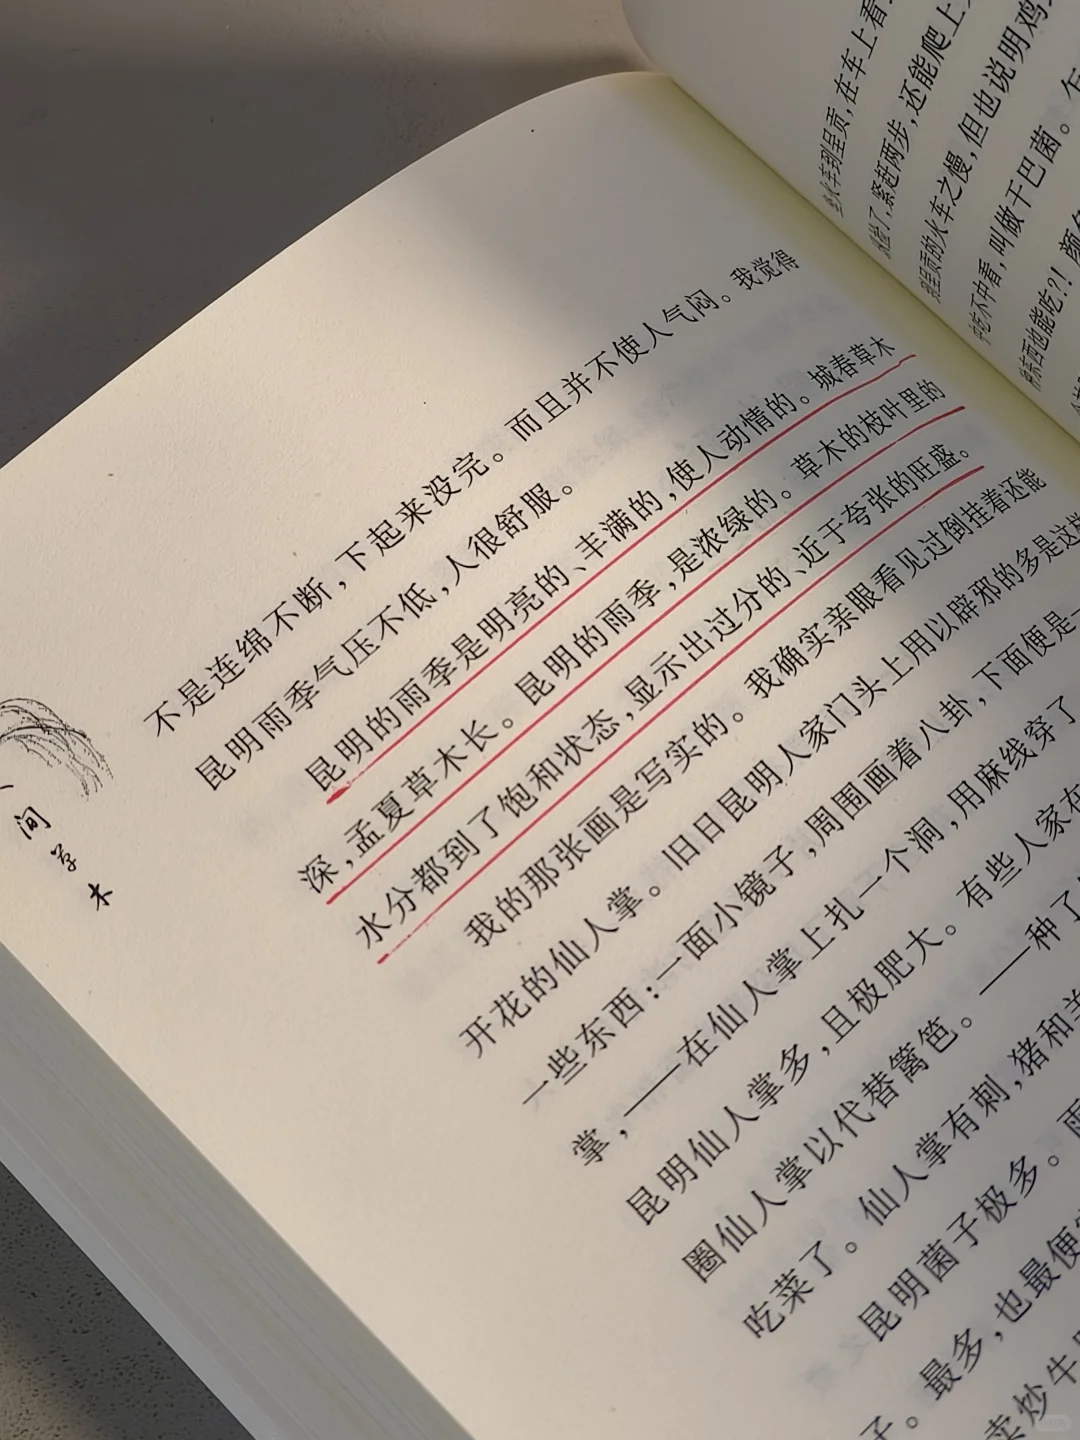 间草木
不是连绵不断，下起来没完。而且并不使人气闷。我觉得
昆明雨季气压不低，人很舒服。
昆明的雨季是明亮的、丰满的，使人动情的。城春草木
深，孟夏草木长。昆明的雨季，是浓绿的。草木的枝叶里的
水分都到了饱和状态，显示出过分的、近于夸张的旺盛。
我的那张画是写实的。我确实亲眼看见过倒挂着还能
开花的仙人掌。旧日昆明人家门头上用以辟邪的多是这样
一些东西：一面小镜子，周围画着八卦，下面便是一
掌，——在仙人掌上扎一个洞，用麻线穿了
昆明仙人掌多，且极肥大。有些人家在
圈仙人掌以代替篱笆。——种了
吃菜了。仙人掌有刺，猪和羊
昆明菌子极多。雨
子。最多，也最便
卖炒牛
到呈贡，在车上看
了，紧赶两步，还能爬上
呈贡的火车之慢，但也说明鸡
中吃不中看，叫做干巴菌。乍
种东西也能吃？！颜色